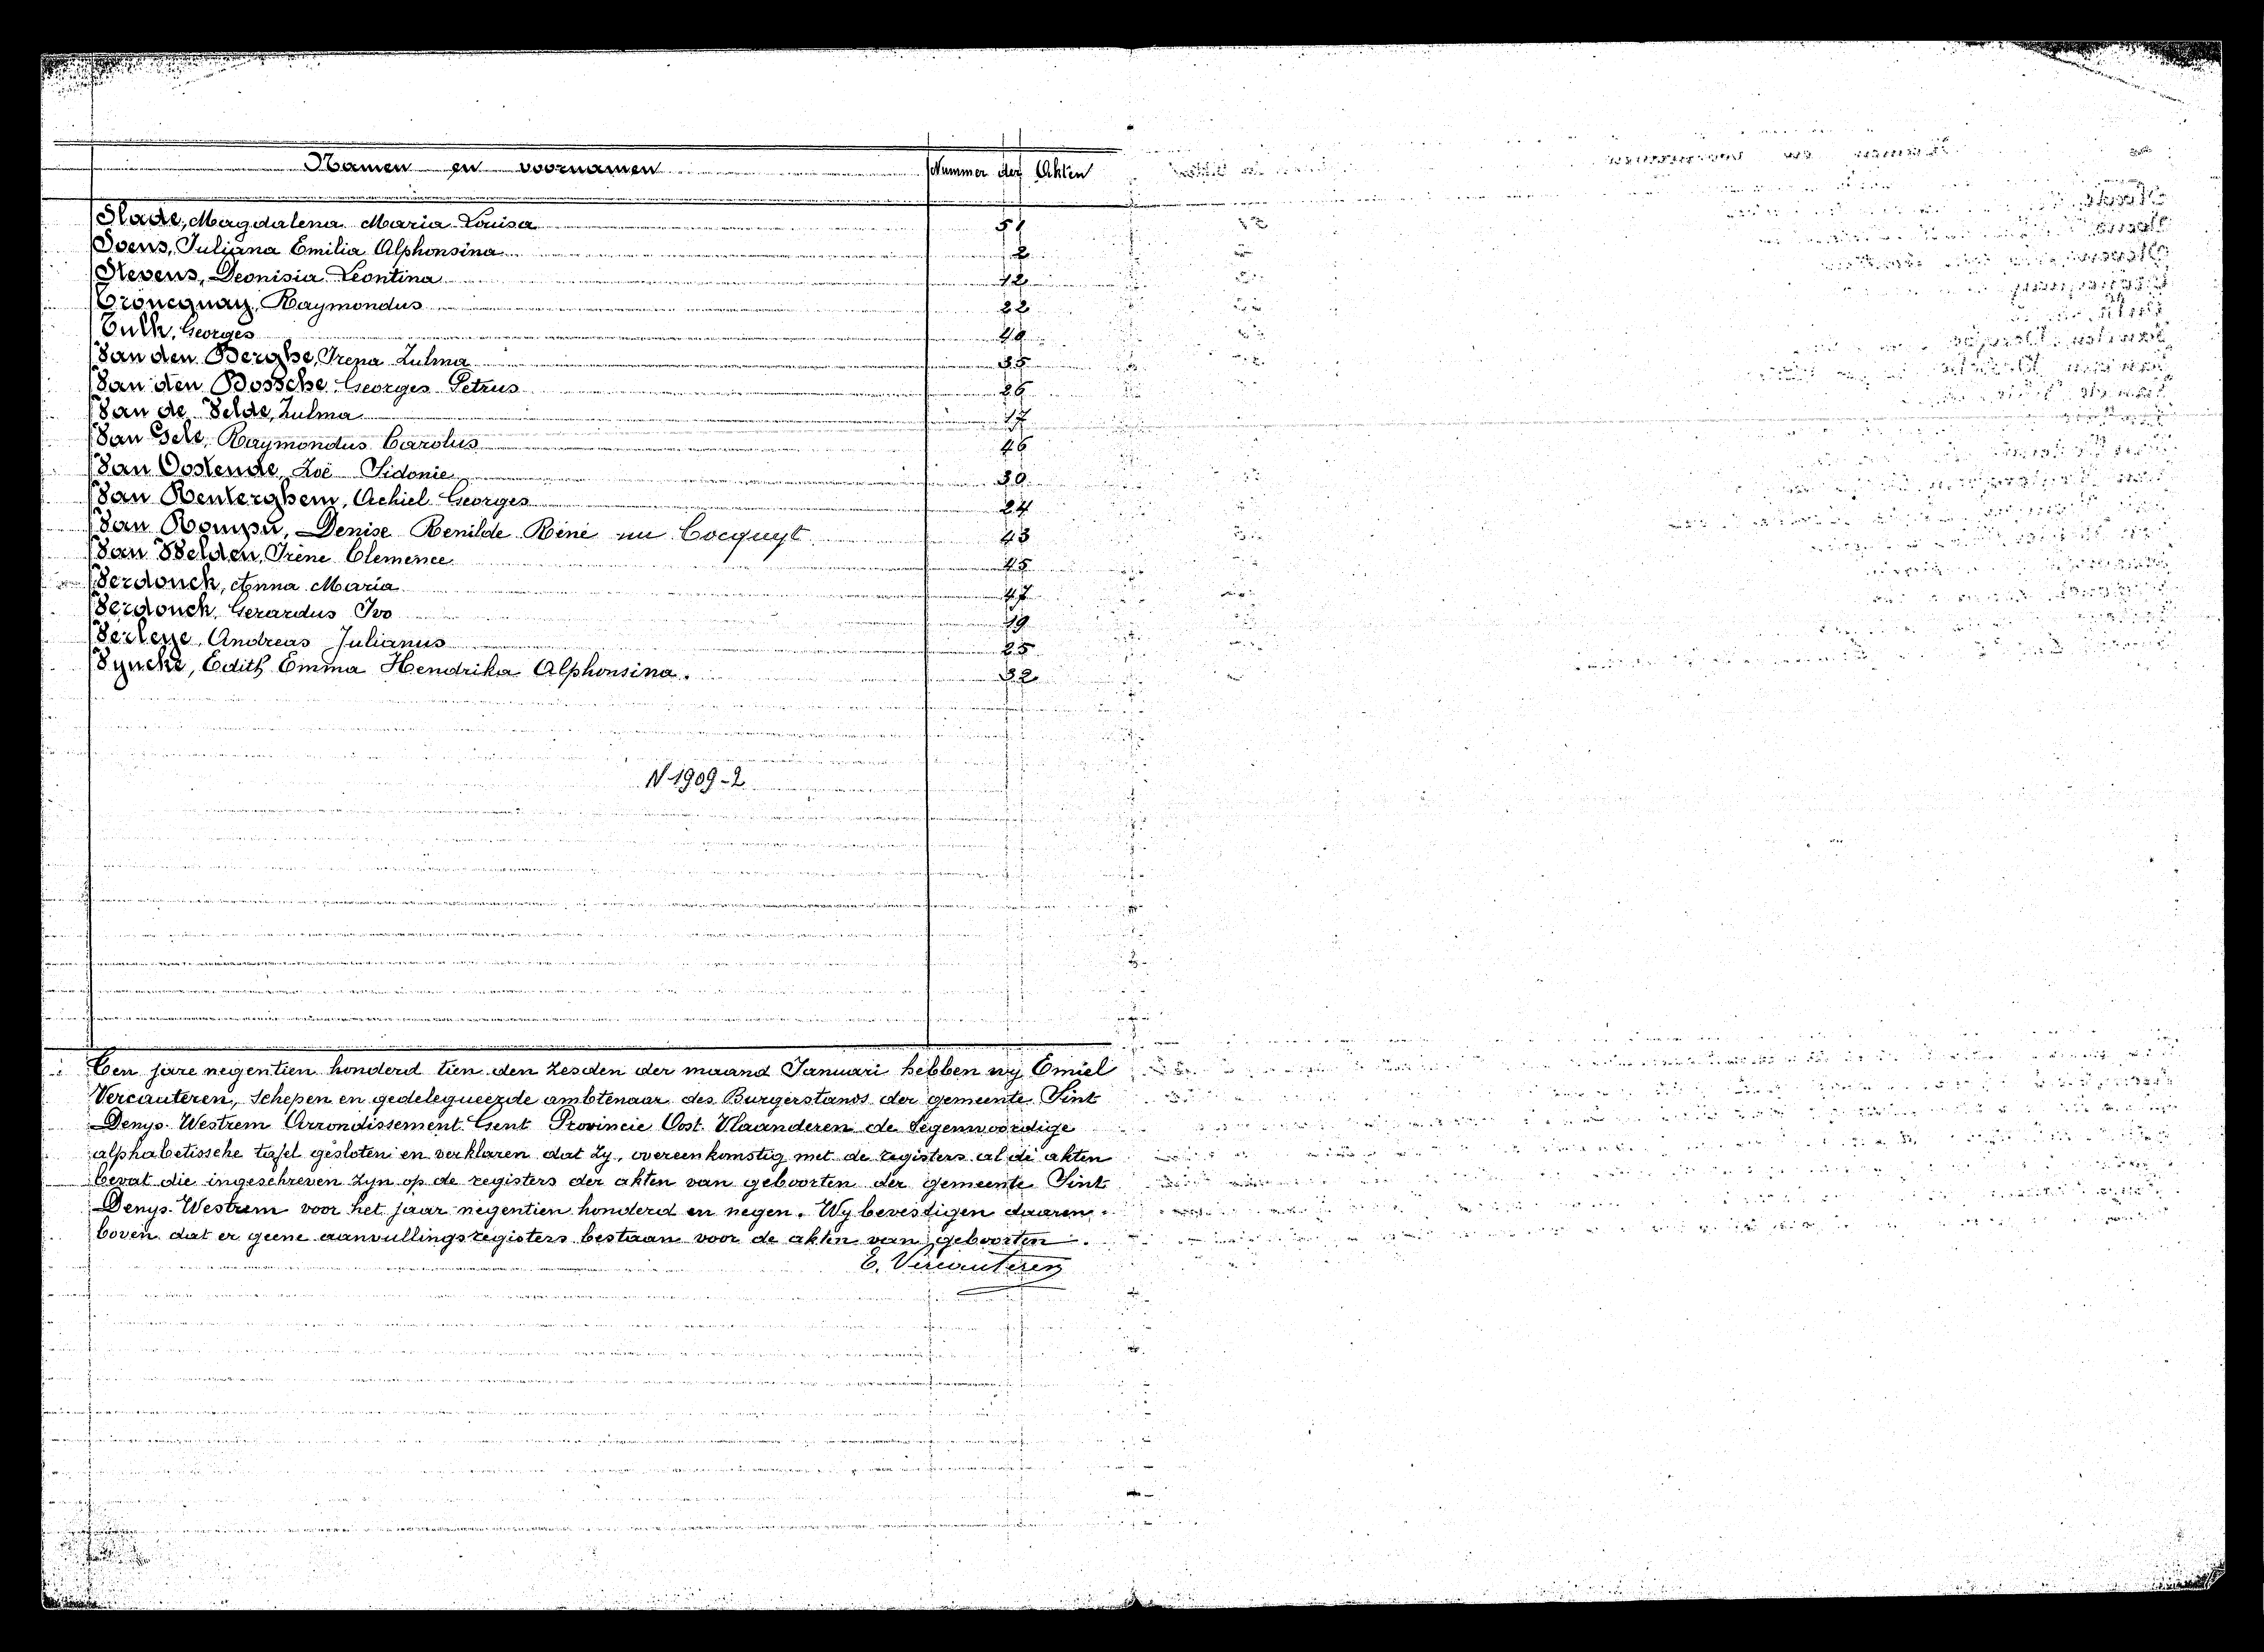 Namen en voornamen Nummer der Akten
Slade, Magdalena Maria Louisa 51
Soens, Juliana Emilia Alphonsina 2
Stevens, Deonisia Leontina 12
Troncquay, Raymondus 22
Tuth, Georges
Van den Berghe, Irena Zulma 35
Van den Bossche Georges Petrus 26
Van de Velde, Zulma 17
Van Gele, Raymondus Carolus 46
Van Oostende, Zoë Sidonie
Van Renterghem, Achiel Georges 24
Van Rompu, Denise Benilde Réné nu Cocquyt 43
Van Velden, Irène Clemence 45
Verdonck, Anna Maria 47
Verdonck, Gerardus Ivo 19
Verleye, Andreas Julianus 25
Vyncke, Edith Emma Hendrika Alphonsina. 32
N 1909-2
Ten jare negentien honderd tien den zesden der maand Januari hebben wy Emiel
Vercauteren, Schepen en gedelegueerde ambtenaar des Burgerstands der gemeente Sint
Denys-Westrem Arrondissement Gent Provincie Oost Vlaanderen de tegenwoordige
alphabetissche tafel gesloten en verklaren dat zy, overeenkomstig met de registers al de akten
bevat die ingeschreven zyn op de registers der akten van geboorten der gemeente Sint
Denys-Westrem voor het jaar negentien honderd en negen. Wy bevestigen daaren-
boven dat er geene aanvullingsregisters bestaan voor de akten van geboorten.
E. Vercauteren